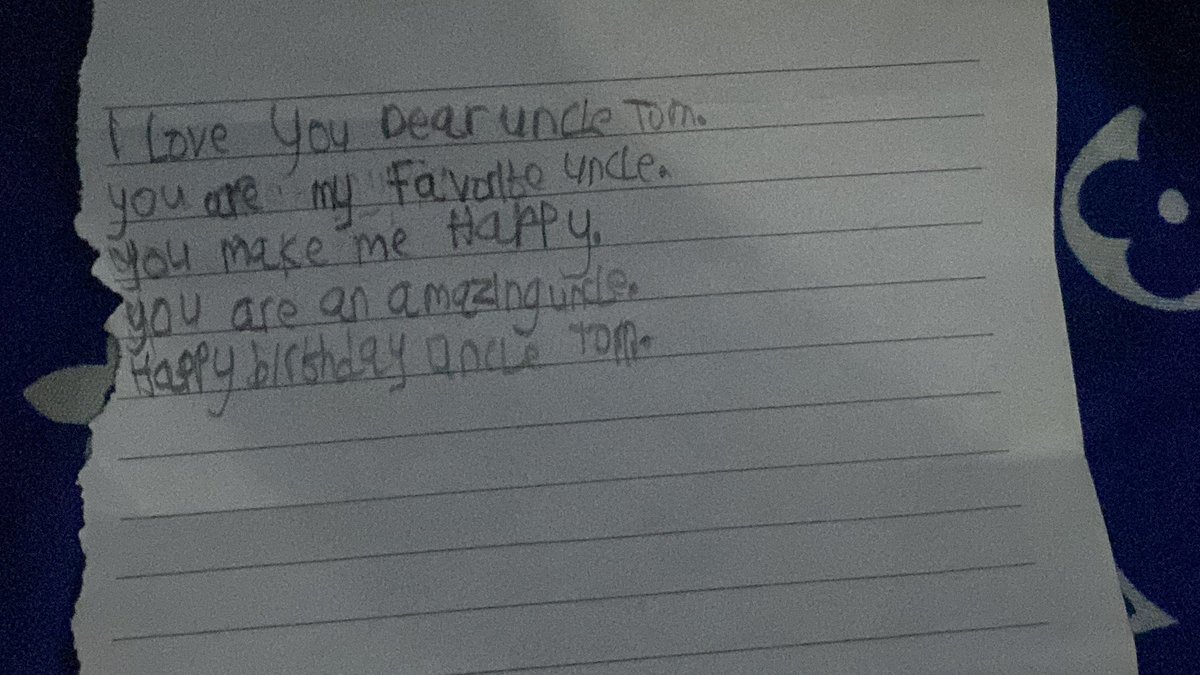 I Love You Dear uncle Tom.
you are my Favorite uncle.
you make me Happy.
you are an amazing uncle.
Happy birthday uncle Tom.